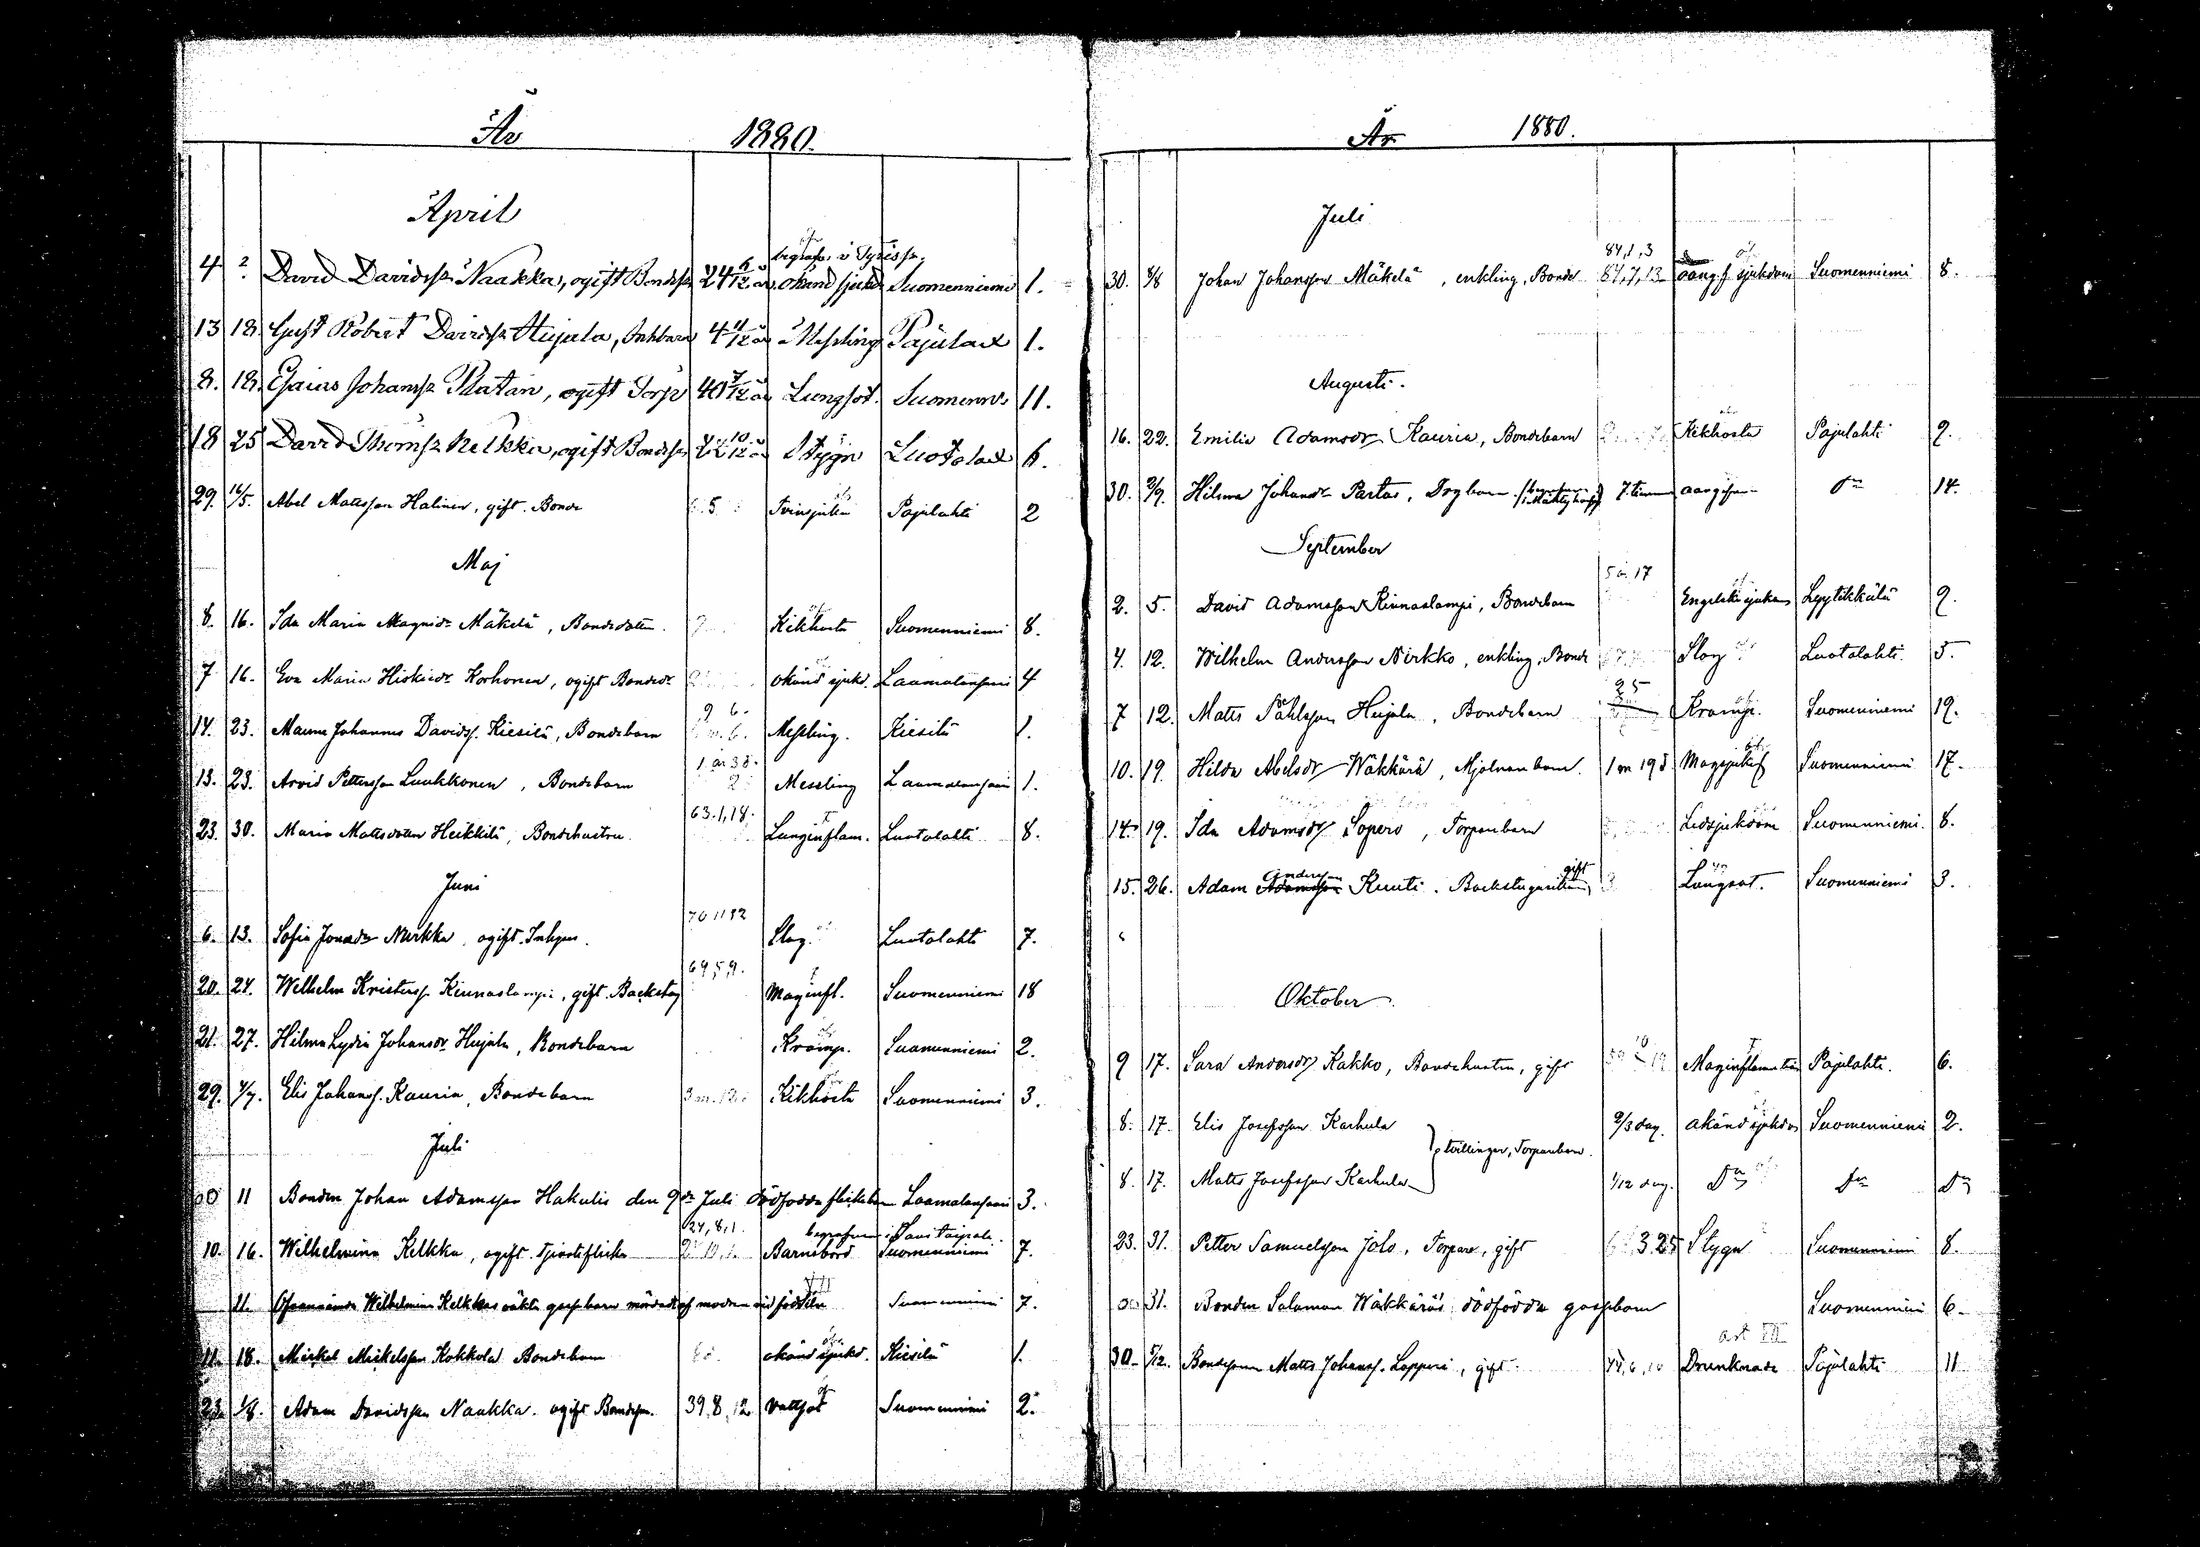 År 1880.
April
begrafn. i
4 ? David Davidss. Naakka, ogift Bondes. 24 6/12 år okänd sjukd Suomenniemi 1.
13 18 Gust Robert Davidss. Hujala, Inhbarn 4 11/12 år Messling Pajulax 1.
8. 18. Esaias Johanss. Ratan, ogift Torp 40 7/12 år Lungsot. Suomenn. 11.
18 25 David Thomss. Kelkka, ogift Bondes. 10/12 år Stygn Luotolax
29. 16/5. Abel Matsson Halinen, gift. Bonde 5 Pajulahti 2
Maj
8. 16. Ida Maria Magnidr Mäkelä, Bondedotter. Kikhosta Suomenniemi 8.
7 16. Eva Maria Hiskiedr Korhonen, ogift Bondedr okänd sjukd. Laamalansaari 4
9 6.
14. 23. Mauno Johannes Davidss. Kiesilä, Bondebarn Messling. Kiesilä 1.
1 år 38.
13. 23. Arvid Pettersson Luukkonen, Bondebarn Messling Laamalansaari 1.
63.1,18.
23. 30. Maria Mattsdotter Heikkilä, Bondehustru. Lunginflam. Luotolahti 8.
Juni
6. 13. Sofia Jonadr Nirkko, ogift. Inhyses. Slag. Luotolahti 7.
69,5,9.
20. 24. Wilhelm Kristerss. Kinnaslampi, gift. Backstug Maginfl. Suomenniemi 18
21. 27. Hilma Lydia Johansdr Hujala, Bondebarn Kramp. Suomenniemi 2.
29. 4/7. Elis Johanss. Kauria, Bondebarn Kikhosta Suomenniemi 3.
Juli
00 11 Bonden Johan Adamsson Hakulis den 9de Juli dödfödda flickebarn Laamalansaari 3.
24,8,1. begrafven i Savitaipale.
10. 16. Wilhelmina Kelkka, ogift. Tjenstflicka Barnsbörd Suomenniemi 7.
11. Ofvannämnda Wilhelmina Kelkkas oäkta gossebarn mördadt af modren vid födseln Suomenniemi 7.
11. 18. Mickel Mickelsson Kokkola Bondebarn okänd sjukd. Kiesilä 1.
23. 1/8. Adam Davidsson Naakka. ogift Bondeson. 39,8,12 Vattsot Suomenniemi 2.
År 1880.
Juli
84,1,3
30. 8/8 Johan Johansson Mäkelä, enkling, Bonde 87,7,13 oang.f sjukdom Suomenniemi 8.
Augusti.
16. 22. Emilia Adamsdr Kauria, Bondebarn Kikhosta Pajulahti 2.
30. 2/9. Hilma Johansdr Partas, Drgbarn 7 timme oangifven do 14.
September
2. 5. David Adamsson Kinnaslampi, Bondebarn Engelska sjukan Lyytikkälä 2.
4. 12. Wilhelm Andersson Nirkko, enkling, Bonde Slag Luotolahti 5.
25
7 12. Matts Påhlsson Hujala, Bondebarn Kramp. Suomenniemi 19.
10. 19. Hilda Abelsdr Wäkkärä, Mjölnarebarn. 1 m 19 d Magsjukd Suomenniemi 17.
14. 19. Ida Adamsdr Sopero, Torparebarn Ledsjukdom Suomenniemi. 8.
Andersson gift
15. 26. Adam Adamsson Kuuti. Backstugusittare, Lungsot. Suomenniemi 3.
Oktober
9 17. Sara Andersdr Kakko, Bondehustru, gift Maginflammation Pajulahti. 6.
8. 17. Elis Josefsson Karhula 2/3 dag. okänd sjukdom Suomenniemi 2.
tvillingar, Torparebarn.
8. 17. Matts Josefsson Karhula 1/12 dag. do do do
23. 31. Petter Samuelsson Jolo, Torpare, gift 3.25 Stygn Suomenniemi 8.
00 31. Bonden Salomon Wäkkäräs dödfödda gossebarn Suomenniemi 6.
art III
30. 5/12. Bondesonen Matts Johanss. Lopperi, gift. 44,6,10 Drunknade Pajulahti 11